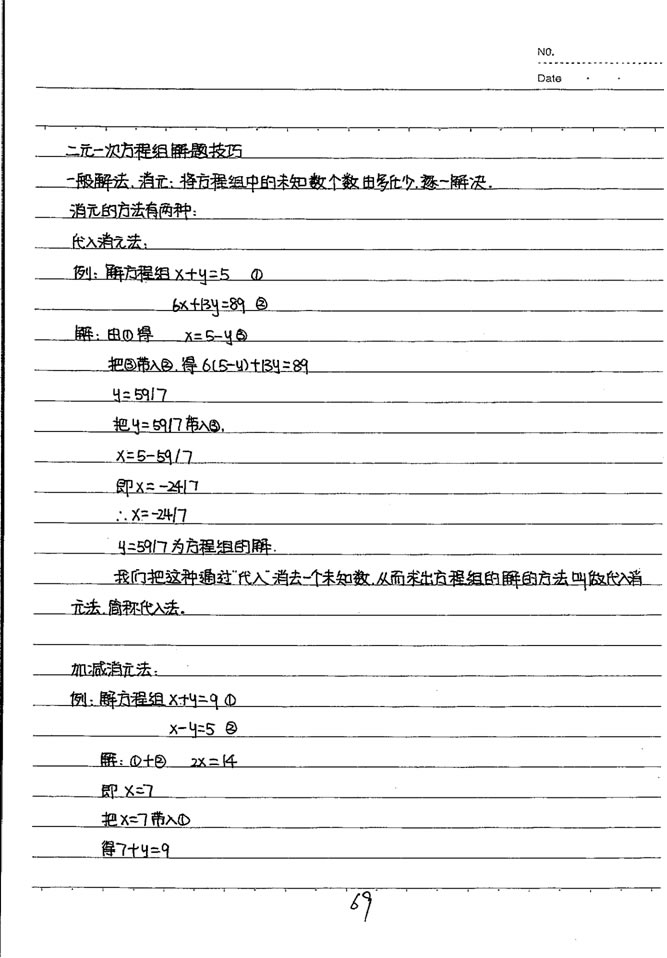 No.
Date · ·
二元一次方程组解题技巧
一般解法，消元：将方程组中的未知数个数由多化少，逐一解决．
消元的方法有两种：
代入消元法：
例：解方程组 x+y=5 ①
6x+13y=89 ②
解：由①得 x=5-y③
把③带入②，得 6(5-y)+13y=89
y=59/7
把y=59/7带入③，
x=5-59/7
即x=-24/7
∴x=-24/7
y=59/7为方程组的解．
我们把这种通过“代入”消去一个未知数，从而求出方程组的解的方法叫做代入消
元法，简称代入法。
加减消元法：
例：解方程组 x+y=9 ①
x-y=5 ②
解：①+② 2x=14
即 x=7
把x=7带入①
得7+y=9
69